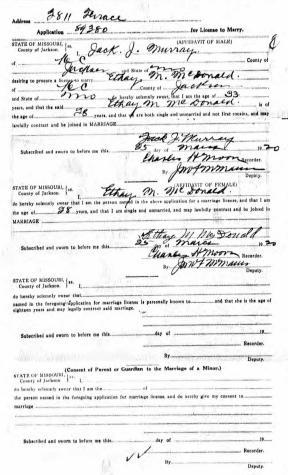 Address 3811 Terrace
Application 89380 for License to Marry.
STATE OF MISSOURI, } ss. (AFFIDAVIT OF MALE)
County of Jackson
I, Jack J. Murray
of K C County of
Jackson and State of Mo
desiring to procure a license to marry Ethay M. McDonald
of K C County of Jackson
and State of Mo do hereby solemnly swear that I am the age of 33
years, and that the said Ethay M McDonald is of
the age of 28 years, and that we are both single and unmarried and not first cousins, and may
lawfully contract and be joined in MARRIAGE
Jack J Murray
Subscribed and sworn to before me this 25 day of March 1920
Charles H Moore Recorder.
By Deputy.
STATE OF MISSOURI, } ss. (AFFIDAVIT OF FEMALE)
County of Jackson
I, Ethay M. McDonald
do hereby solemnly swear that I am the person named in the above application for a marriage license, and that I am
the age of 28 years, and that I am single and unmarried, and may lawfully contract and be joined in
MARRIAGE
Ethay M McDonald
Subscribed and sworn to before me this 25 day of March 1920
Charles H Moore Recorder.
By Deputy.
STATE OF MISSOURI, } ss.
County of Jackson
I,
do hereby solemnly swear that
named in the foregoing application for marriage license is personally known to and that she is the age of
eighteen years and may legally contract said marriage.
Subscribed and sworn to before me this day of 19
Recorder.
By Deputy.
(Consent of Parent or Guardian to the Marriage of a Minor.)
STATE OF MISSOURI, } ss.
County of Jackson
I,
do hereby solemnly swear that I am the of
the person named in the foregoing application for marriage license, and do hereby give my consent to
marriage
Subscribed and sworn to before me this day of 19
Recorder.
By Deputy.